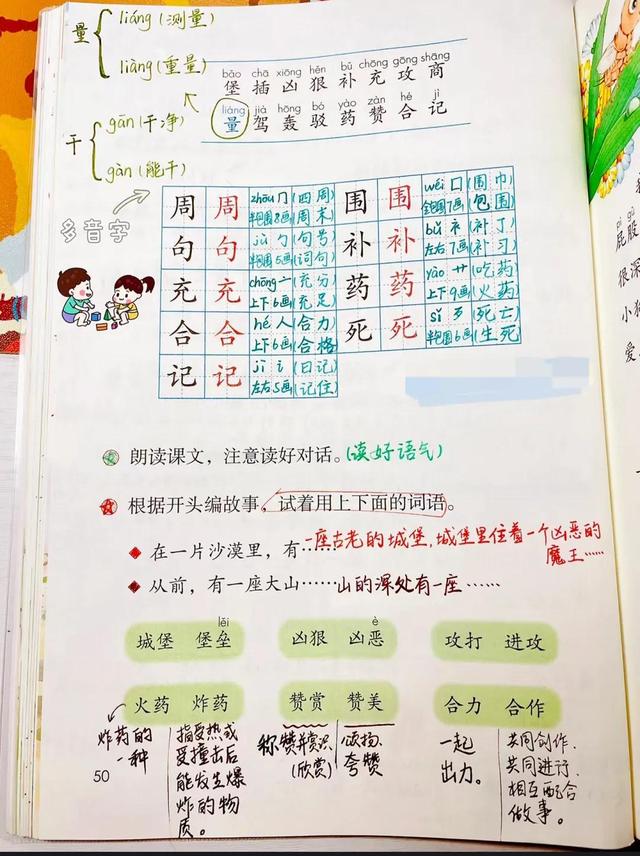 量 liáng(测量)
liàng(重量)
干 gān(干净)
gàn(能干)
多音字
bǎo chā xiōng hěn bǔ chōng gōng shāng
堡 插 凶 狠 补 充 攻 商
liáng jià hōng bó yào zàn hé jì
量 驾 轰 驳 药 赞 合 记
周 周 zhōu 冂 (四周) 围 围 wéi 囗 (围巾)
半包围 8画 (周末) 全包围 7画 (包围)
句 句 jù 勹 (句号) 补 补 bǔ 衤 (补丁)
半包围 5画 (词句) 左右 7画 (补习)
充 充 chōng 亠 (充分) 药 药 yào 艹 (吃药)
上下 6画 (充足) 上下 9画 (火药)
合 合 hé 人 (合力) 死 死 sǐ 歹 (死亡)
上下 6画 (合格) 半包围 6画 (生死)
记 记 jì 讠 (日记)
左右 5画 (记住)
朗读课文，注意读好对话。(读好语气)
根据开头编故事，试着用上下面的词语。
◆ 在一片沙漠里，有……一座古老的城堡,城堡里住着一个凶恶的
魔王……
◆ 从前，有一座大山……山的深处有一座……
lěi è
城堡 堡垒 凶狠 凶恶 攻打 进攻
火药 炸药 赞赏 赞美 合力 合作
炸药的
一种
指受热或
受撞击后
能发生爆
炸的物
质。
称赞并赏识
(欣赏)
颂扬、
夸赞
一起
出力。
共同创作、
共同进行、
相互配合
做事。
50
pì gu
屁股
很深
小猴
爱